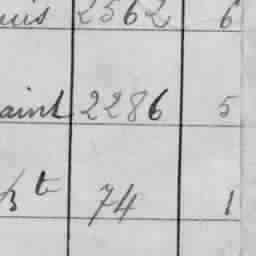 uis 2562 6
aint 2286 5
ht 74 1